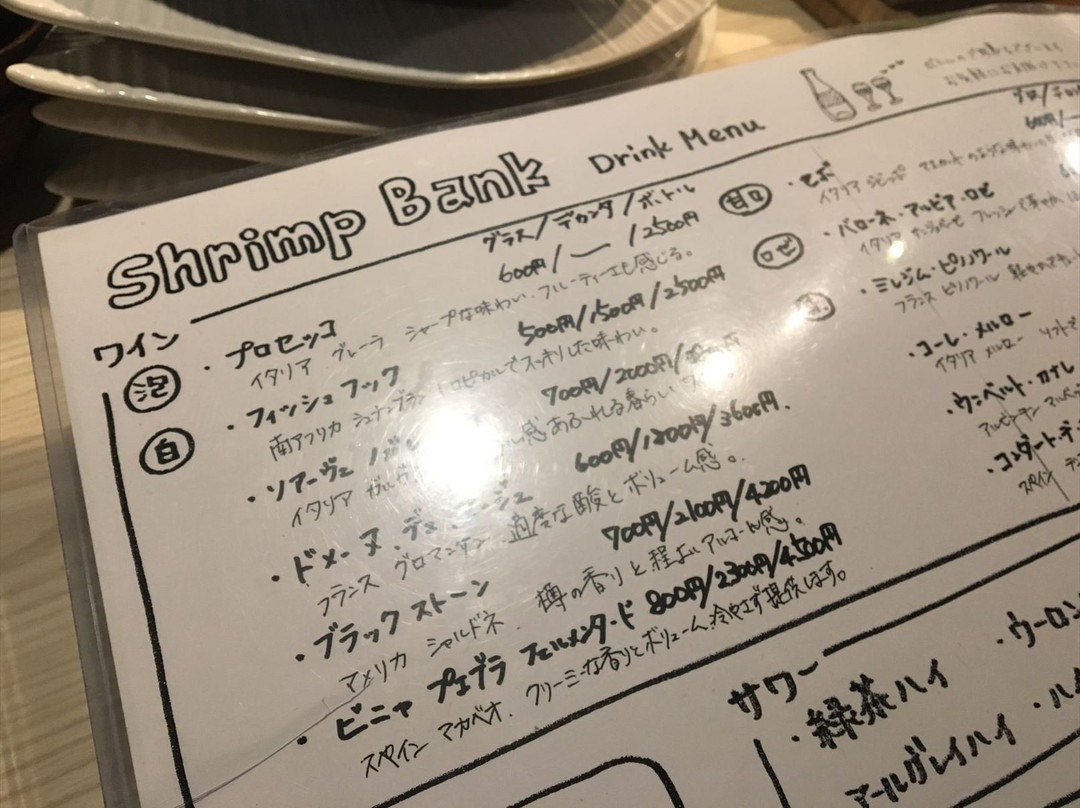 Shrimp Bank Drink Menu
ワイン
グラス/デカンタ/ボトル
泡
・プロセッコ 600円/ー/2500円
イタリア グレーラ シャープな味わい、フルーティーさも感じる。
白
・フィッシュフック 500円/1500円/2500円
南アフリカ シュナンブラン トロピカルでスッキリした味わい。
・ソアーヴェ 700円/2000円/
イタリア ガルガ 感あふれる春らしい
・ドメーヌ・デュ 600円/1800円/3600円.
フランス グロマンサン. 適度な酸とボリューム感。
・ブラックストーン 700円/2100円/4200円
アメリカ シャルドネ. 樽の香りと程よいアルコール感。
・ビニャ プエブラ フェルメンタード 800円/2300円/4500円
スペイン マカベオ. クリーミーな香りとボリューム、冷やさず提供します。
グラス/デカ
甘口
600円/ー
イタリア
ロゼ
・バローネ・アルビア・ロゼ
イタリア
赤
・ミレジム・ピノノワール
フランス ピノノワール
・コーレ・メルロー
イタリア メルロー
・ウンベルト・カナレ
アルゼンチン マルベック
・コンダード・デ
スペイン
サワー
・緑茶ハイ
・ウーロン
アールグレイハイ
・ハ